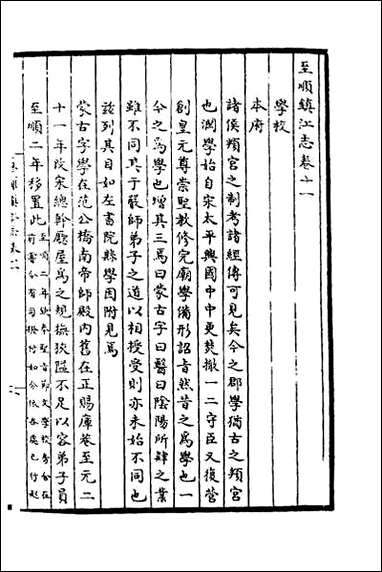 至順鎮江志卷十一
學校
本府
諸侯頖宮之制考諸經傳可見矣今之郡學猶古之頖宮
也潤學始自宋太平興國中中更焚撤一二守臣又復營
創皇元尊崇聖教修完廟學備形詔旨然昔之為學也一
今之為學也增其三焉曰蒙古字曰醫曰陰陽所肄之業
雖不同其于嚴師弟子之道以相授受則亦未始不同也
茲列其目如左書院縣學因附見焉
蒙古字學在范公橋南帝師殿內舊在正賜庫巷至元二
十一年改宋總幹廳屋為之規橅狹隘不足以容弟子員
至順二年移置此